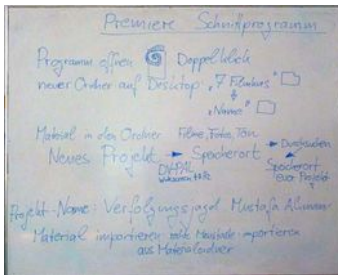 Premiere Schnittprogramm
Programm öffnen Doppelklick
neuer Ordner auf Desktop: "7 Filmkurs"
"Name"
Material in den Ordner Filme, Fotos, Ton
Neues Projekt → Speicherort → Durchsuchen
DV-PAL Speicherort
euer Projekt
Projekt-Name: Verfolgungsjagd Mustafa
Material importieren: rechte Maustaste - importieren
aus Materialordner